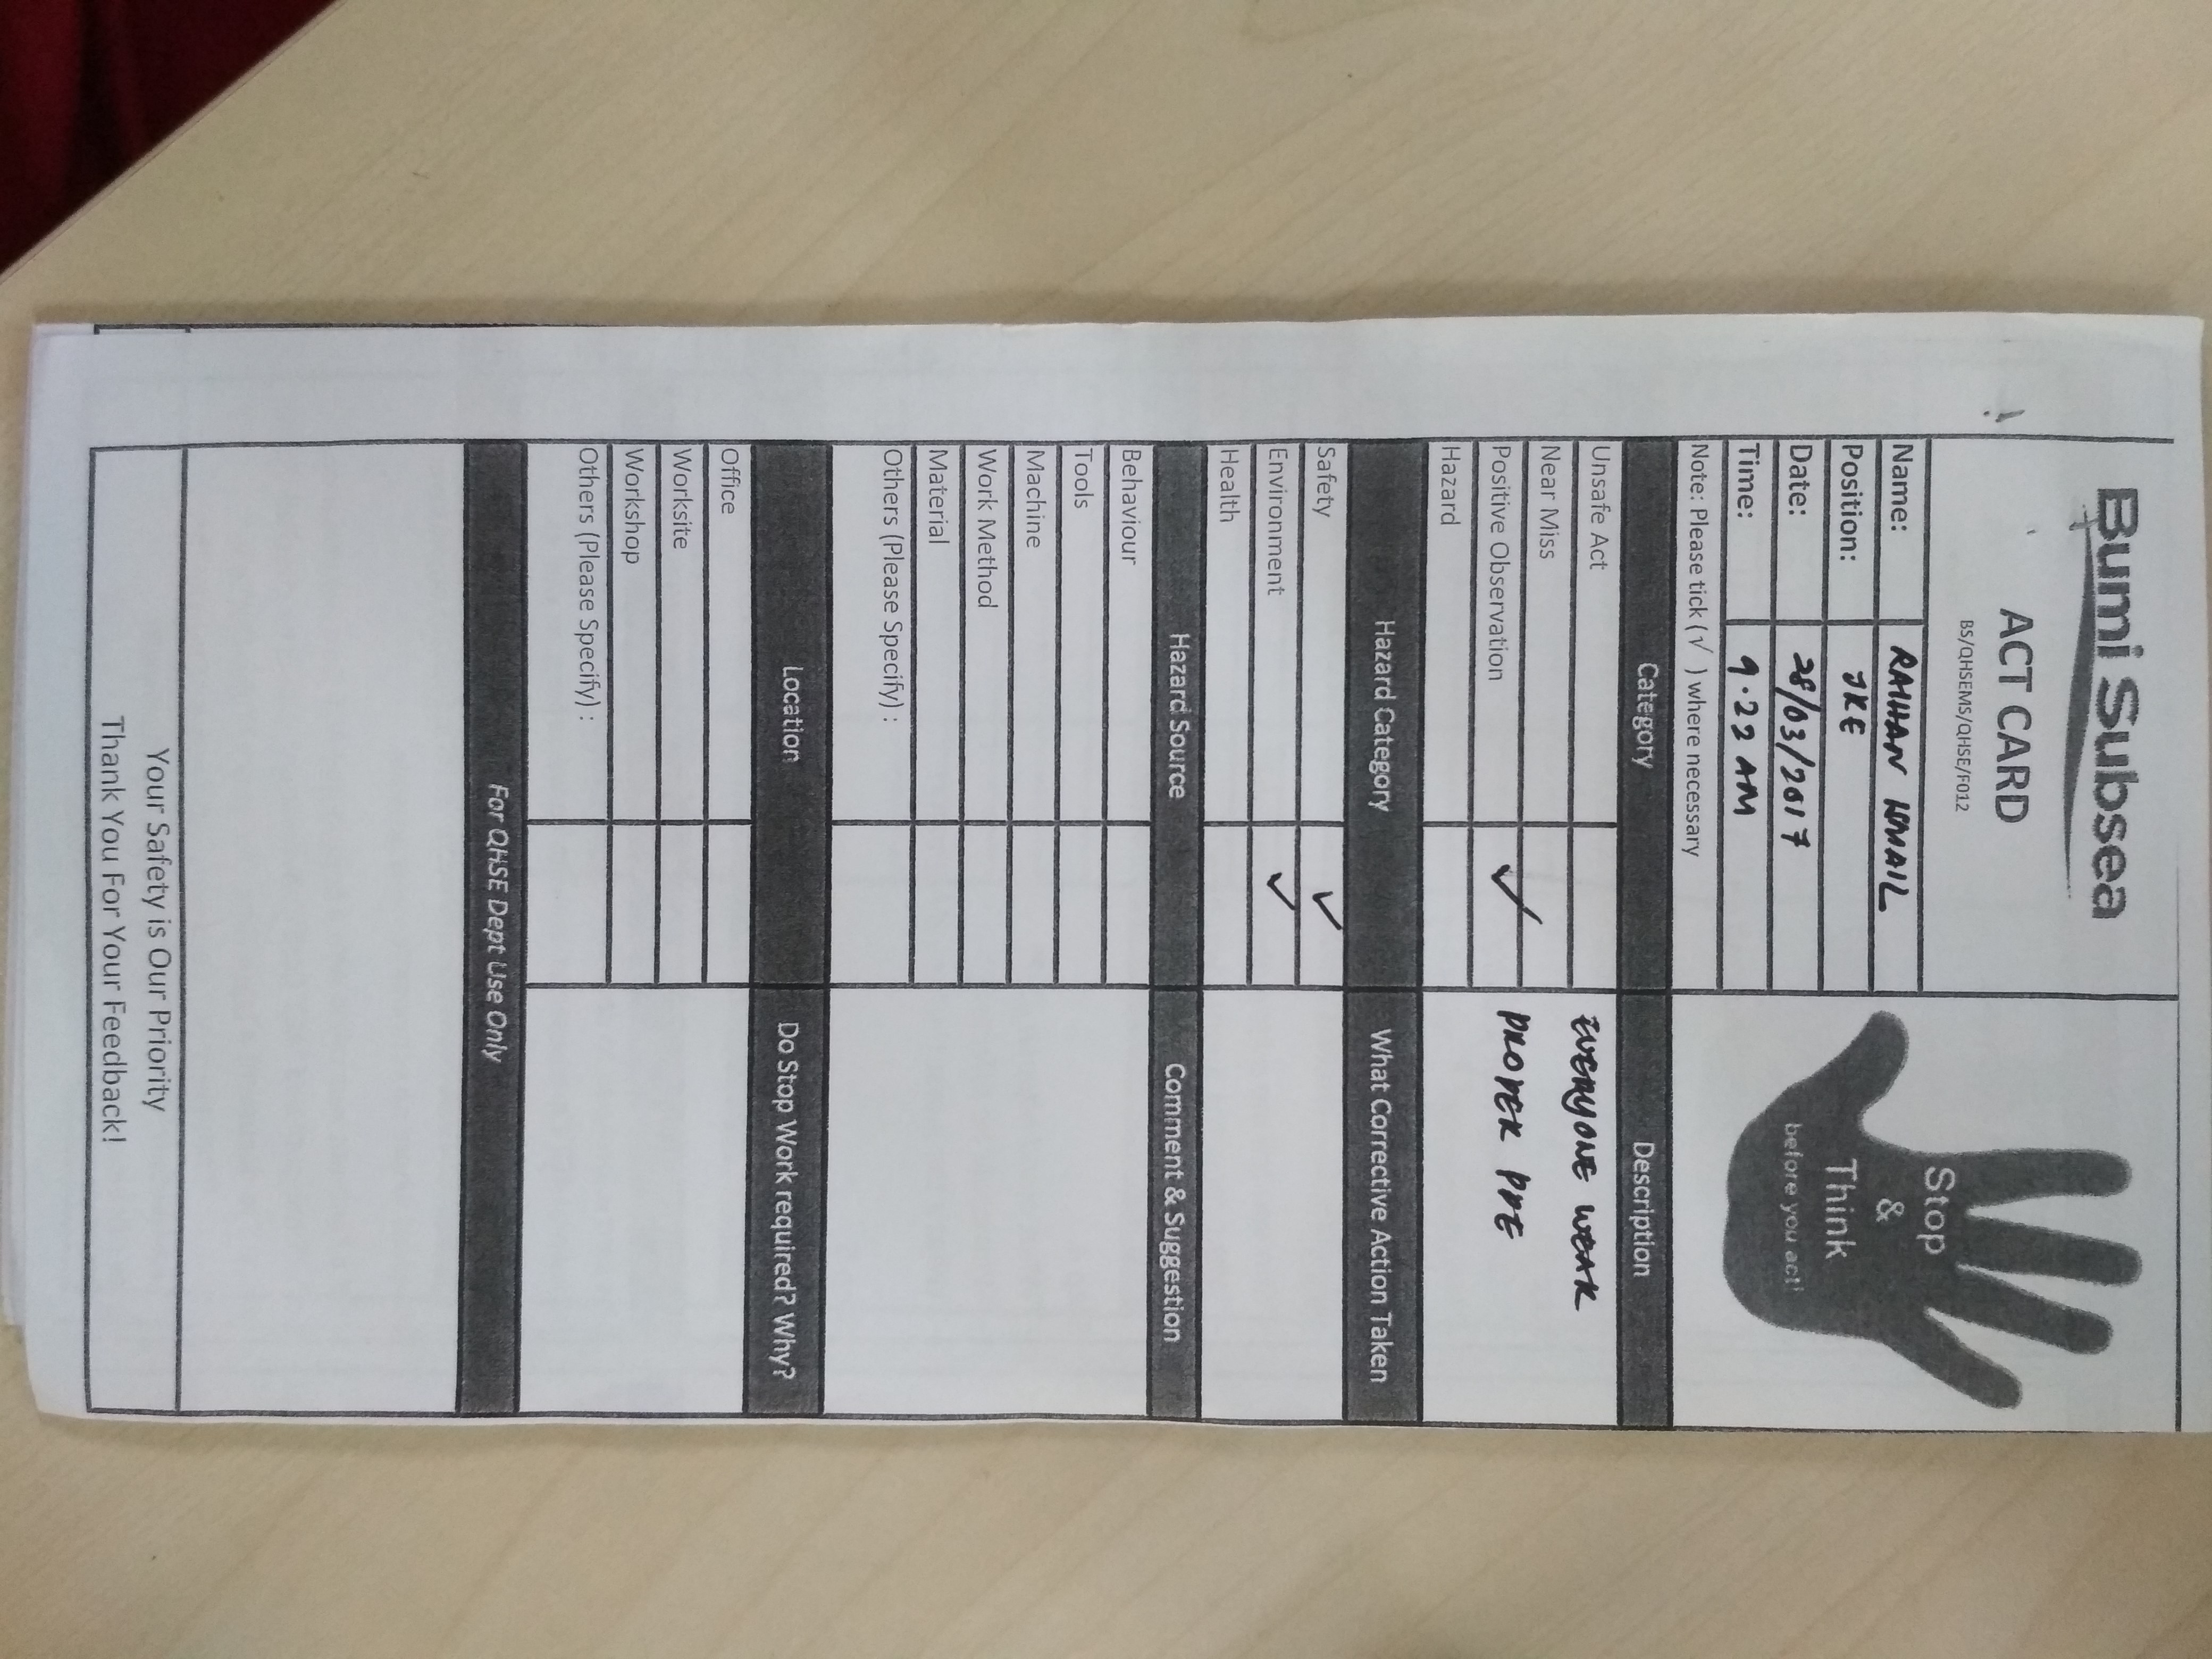 Bumi Subsea
ACT CARD
BS/QHSEMS/QHSE/F012
Stop
&
Think
before you act!
Name: RAIHAN ISMAIL
Position: JKE
Date: 28/03/2017
Time: 9.22 AM
Note: Please tick (√ ) where necessary
Category Description
Unsafe Act
Near Miss
Positive Observation ✓
Hazard
EVERYONE WEAR
PROPER PPE
Hazard Category What Corrective Action Taken
Safety ✓
Environment ✓
Health
Hazard Source Comment & Suggestion
Behaviour
Tools
Machine
Work Method
Material
Others (Please Specify) :
Location Do Stop Work required? Why?
Office
Worksite
Workshop
Others (Please Specify) :
For QHSE Dept Use Only
Your Safety is Our Priority
Thank You For Your Feedback!